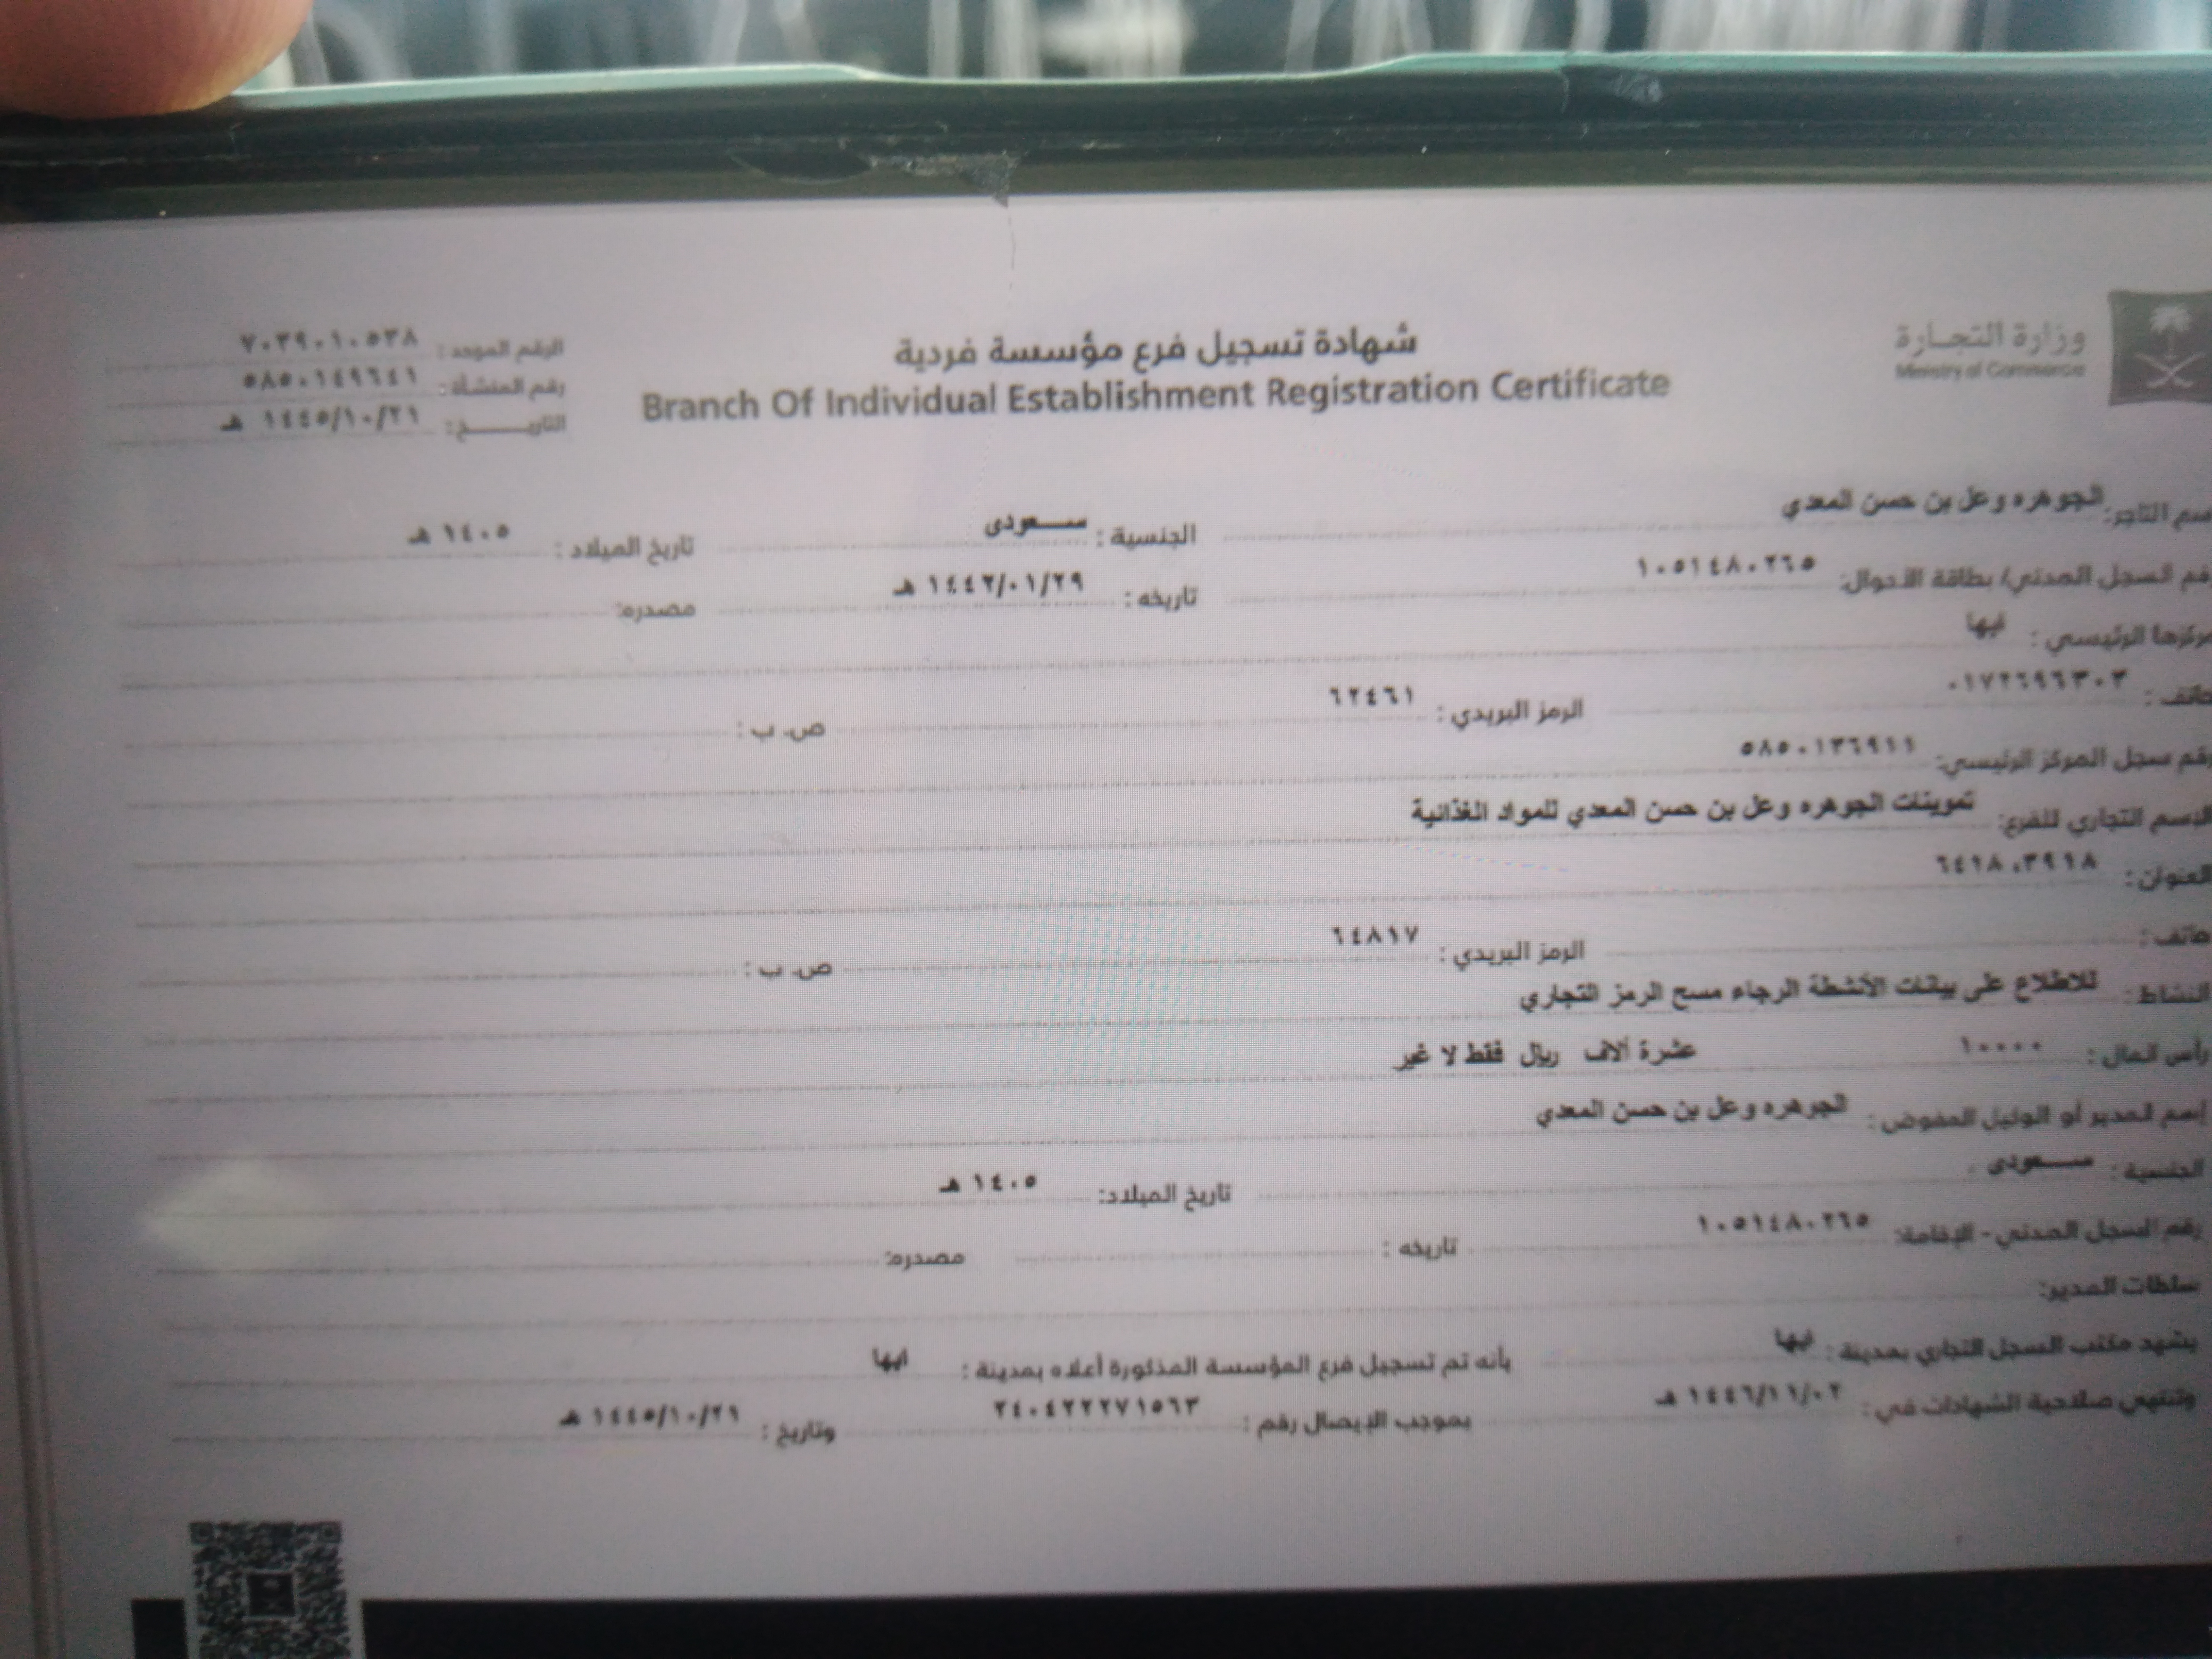 وزارة التجارة
Ministry of Commerce
شهادة تسجيل فرع مؤسسة فردية
Branch Of Individual Establishment Registration Certificate
الرقم الموحد: ٧٠٣٩٠١٠٥٣٨
رقم المنشأة: ٥٨٥٠١٤٩٦٤١
التاريـــــخ: ١٤٤٥/١٠/٢١ هـ
اسم التاجر: الجوهره وعل بن حسن المعدي الجنسية: سـعودى تاريخ الميلاد: ١٤٠٥ هـ
رقم السجل المدني/ بطاقة الأحوال: ١٠٥١٤٨٠٢٦٥ تاريخه: ١٤٤٢/٠١/٢٩ هـ مصدره:
مركزها الرئيسي: ابها
هاتف: ٠١٧٢٦٩٦٣٠٣ الرمز البريدي: ٦٢٤٦١ ص. ب:
رقم سجل المركز الرئيسي: ٥٨٥٠١٣٦٩١١
الاسم التجاري للفرع: تموينات الجوهره وعل بن حسن المعدي للمواد الغذائية
العنوان: ٦٤١٨،٣٩١٨
هاتف: الرمز البريدي: ٦٤٨١٧ ص. ب:
النشاط: للاطلاع على بيانات الأنشطة الرجاء مسح الرمز التجاري
رأس المال: ١٠٠٠٠ عشرة آلاف ريال فقط لا غير
إسم المدير أو الوكيل المفوض: الجوهره وعل بن حسن المعدي
الجنسية: سـعودى تاريخ الميلاد: ١٤٠٥ هـ
رقم السجل المدني - الإقامة: ١٠٥١٤٨٠٢٦٥ تاريخه: مصدره:
سلطات المدير:
يشهد مكتب السجل التجاري بمدينة: ابها بأنه تم تسجيل فرع المؤسسة المذكورة أعلاه بمدينة: ابها
وتنتهي صلاحية الشهادات في: ١٤٤٦/١١/٠٢ هـ بموجب الإيصال رقم: ٢٤٠٤٢٢٢٧١٥٦٣ وتاريخ: ١٤٤٥/١٠/٢١ هـ